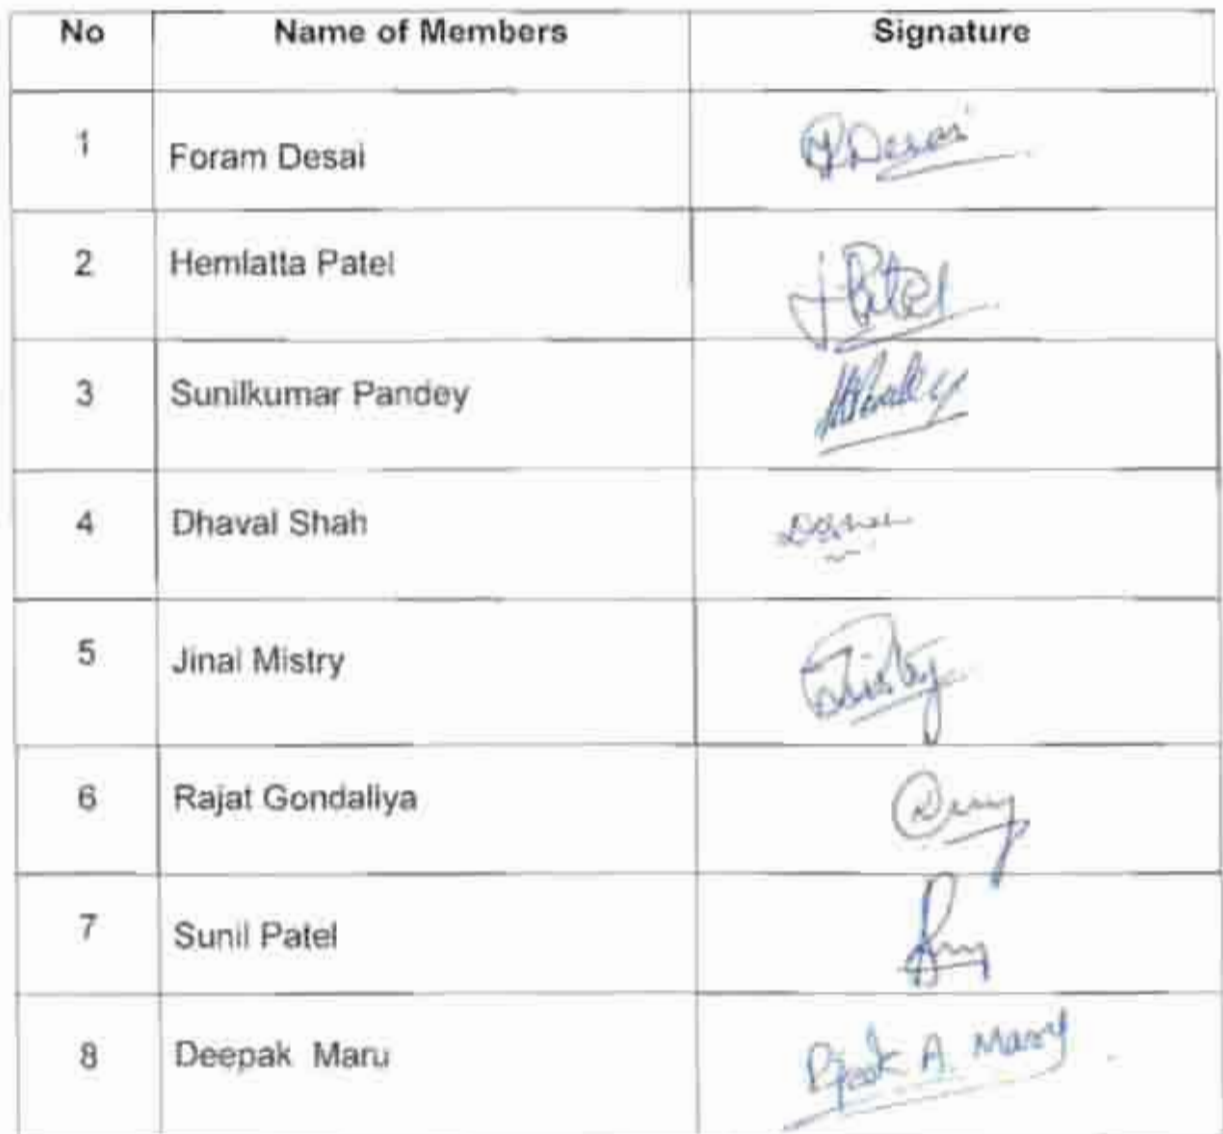 No Name of Members Signature
1 Foram Desai Desai
2 Hemlatta Patel Patel
3 Sunilkumar Pandey
4 Dhaval Shah
5 Jinal Mistry
6 Rajat Gondaliya
7 Sunil Patel
8 Deepak Maru A.